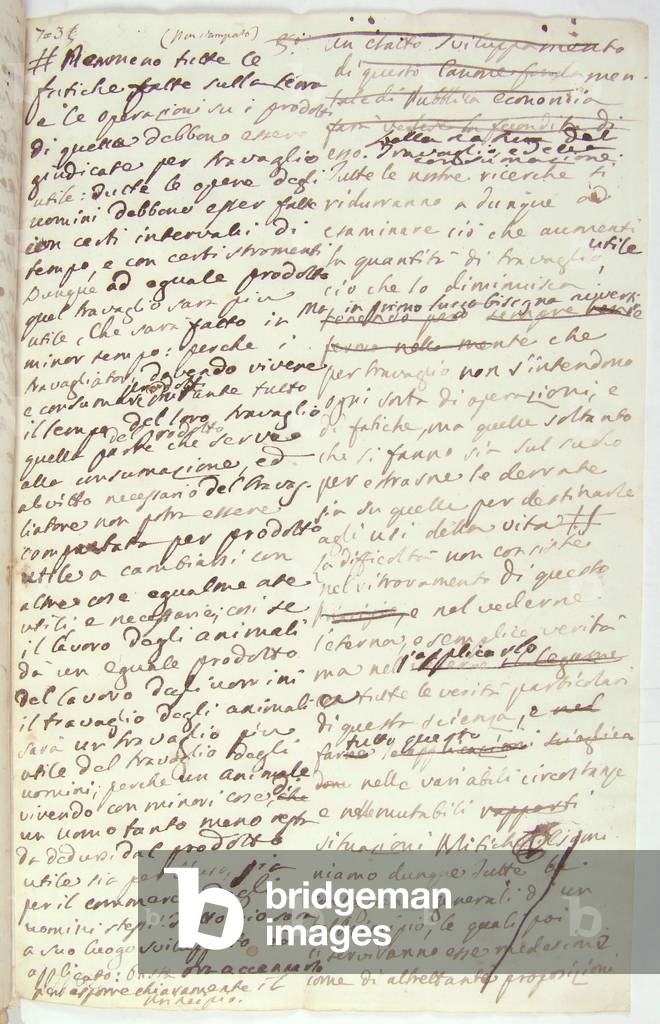 (Non stampato)
# Nemeno tutte le
fatiche fatte sulla terra
e le operazioni su i prodotti
di quella debbono essere
giudicate per travaglio
utile: tutte le opere degli
uomini debbono esser fatte
con certi intervalli di
tempo, e con certi stromenti
Dunque ad eguale prodotto
quel travaglio sarà più
utile, che sarà fatto in
minor tempo: perche i
travagliatori dovendo vivere
e consumare durante tutto
il tempo del loro travaglio
del prodotto
quella parte che serve
alla consumazione, ed
al vitto necessario del travag-
liatore non potrà essere
computata per prodotto
utile a cambiarsi con
altre cose egualmente
utili e necessarie; così se
il lavoro degli animali
dà un eguale prodotto
del lavoro degli uomini
il travaglio degli animali
sarà un travaglio più
utile del travaglio degli
uomini; perche un animale
vivendo con minori cose di
un uomo tanto meno resta
da dedursi dal prodotto
utile sia per
per il commercio
uomini stessi.
a suo luogo sviluppato
applicato: basta ora accennarlo
per esporre chiaramente il
principio.
un esatto sviluppamento
di questo canone fondamen-
tale di Pubblica economia
farà vedere la fecondità di
esso. Della natura del
Travaglio e della
consumazione.
Tutte le nostre ricerche si
ridurranno a dunque ad
esaminare ciò che aumenti
la quantità di travaglio utile
ciò che lo diminuisca
Ma in primo luogo bisogna avverti-
tenendo però sempre
ferma nella mente che
per travaglio non s'intendono
ogni sorta di operazioni, e
di fatiche, ma quelle soltanto
che si fanno sia sul suolo
per estrarne le derrate
sia su quelle per destinarle
agli usi della vita #
la difficoltà non consiste
nel ritrovamento di questo
principio, e nel vederne
l'eterna, e semplice verità
ma nell'applicarlo
a tutte le verità particolari
di questa scienza, e nel
tutto questo
nelle variabili circostanze
e nelle mutabili rapporti
situazioni Politiche.
niamo dunque tutte
generali di un
le quali poi
ci serviranno esse medesime
come di altrettante proposizioni
bridgeman
images